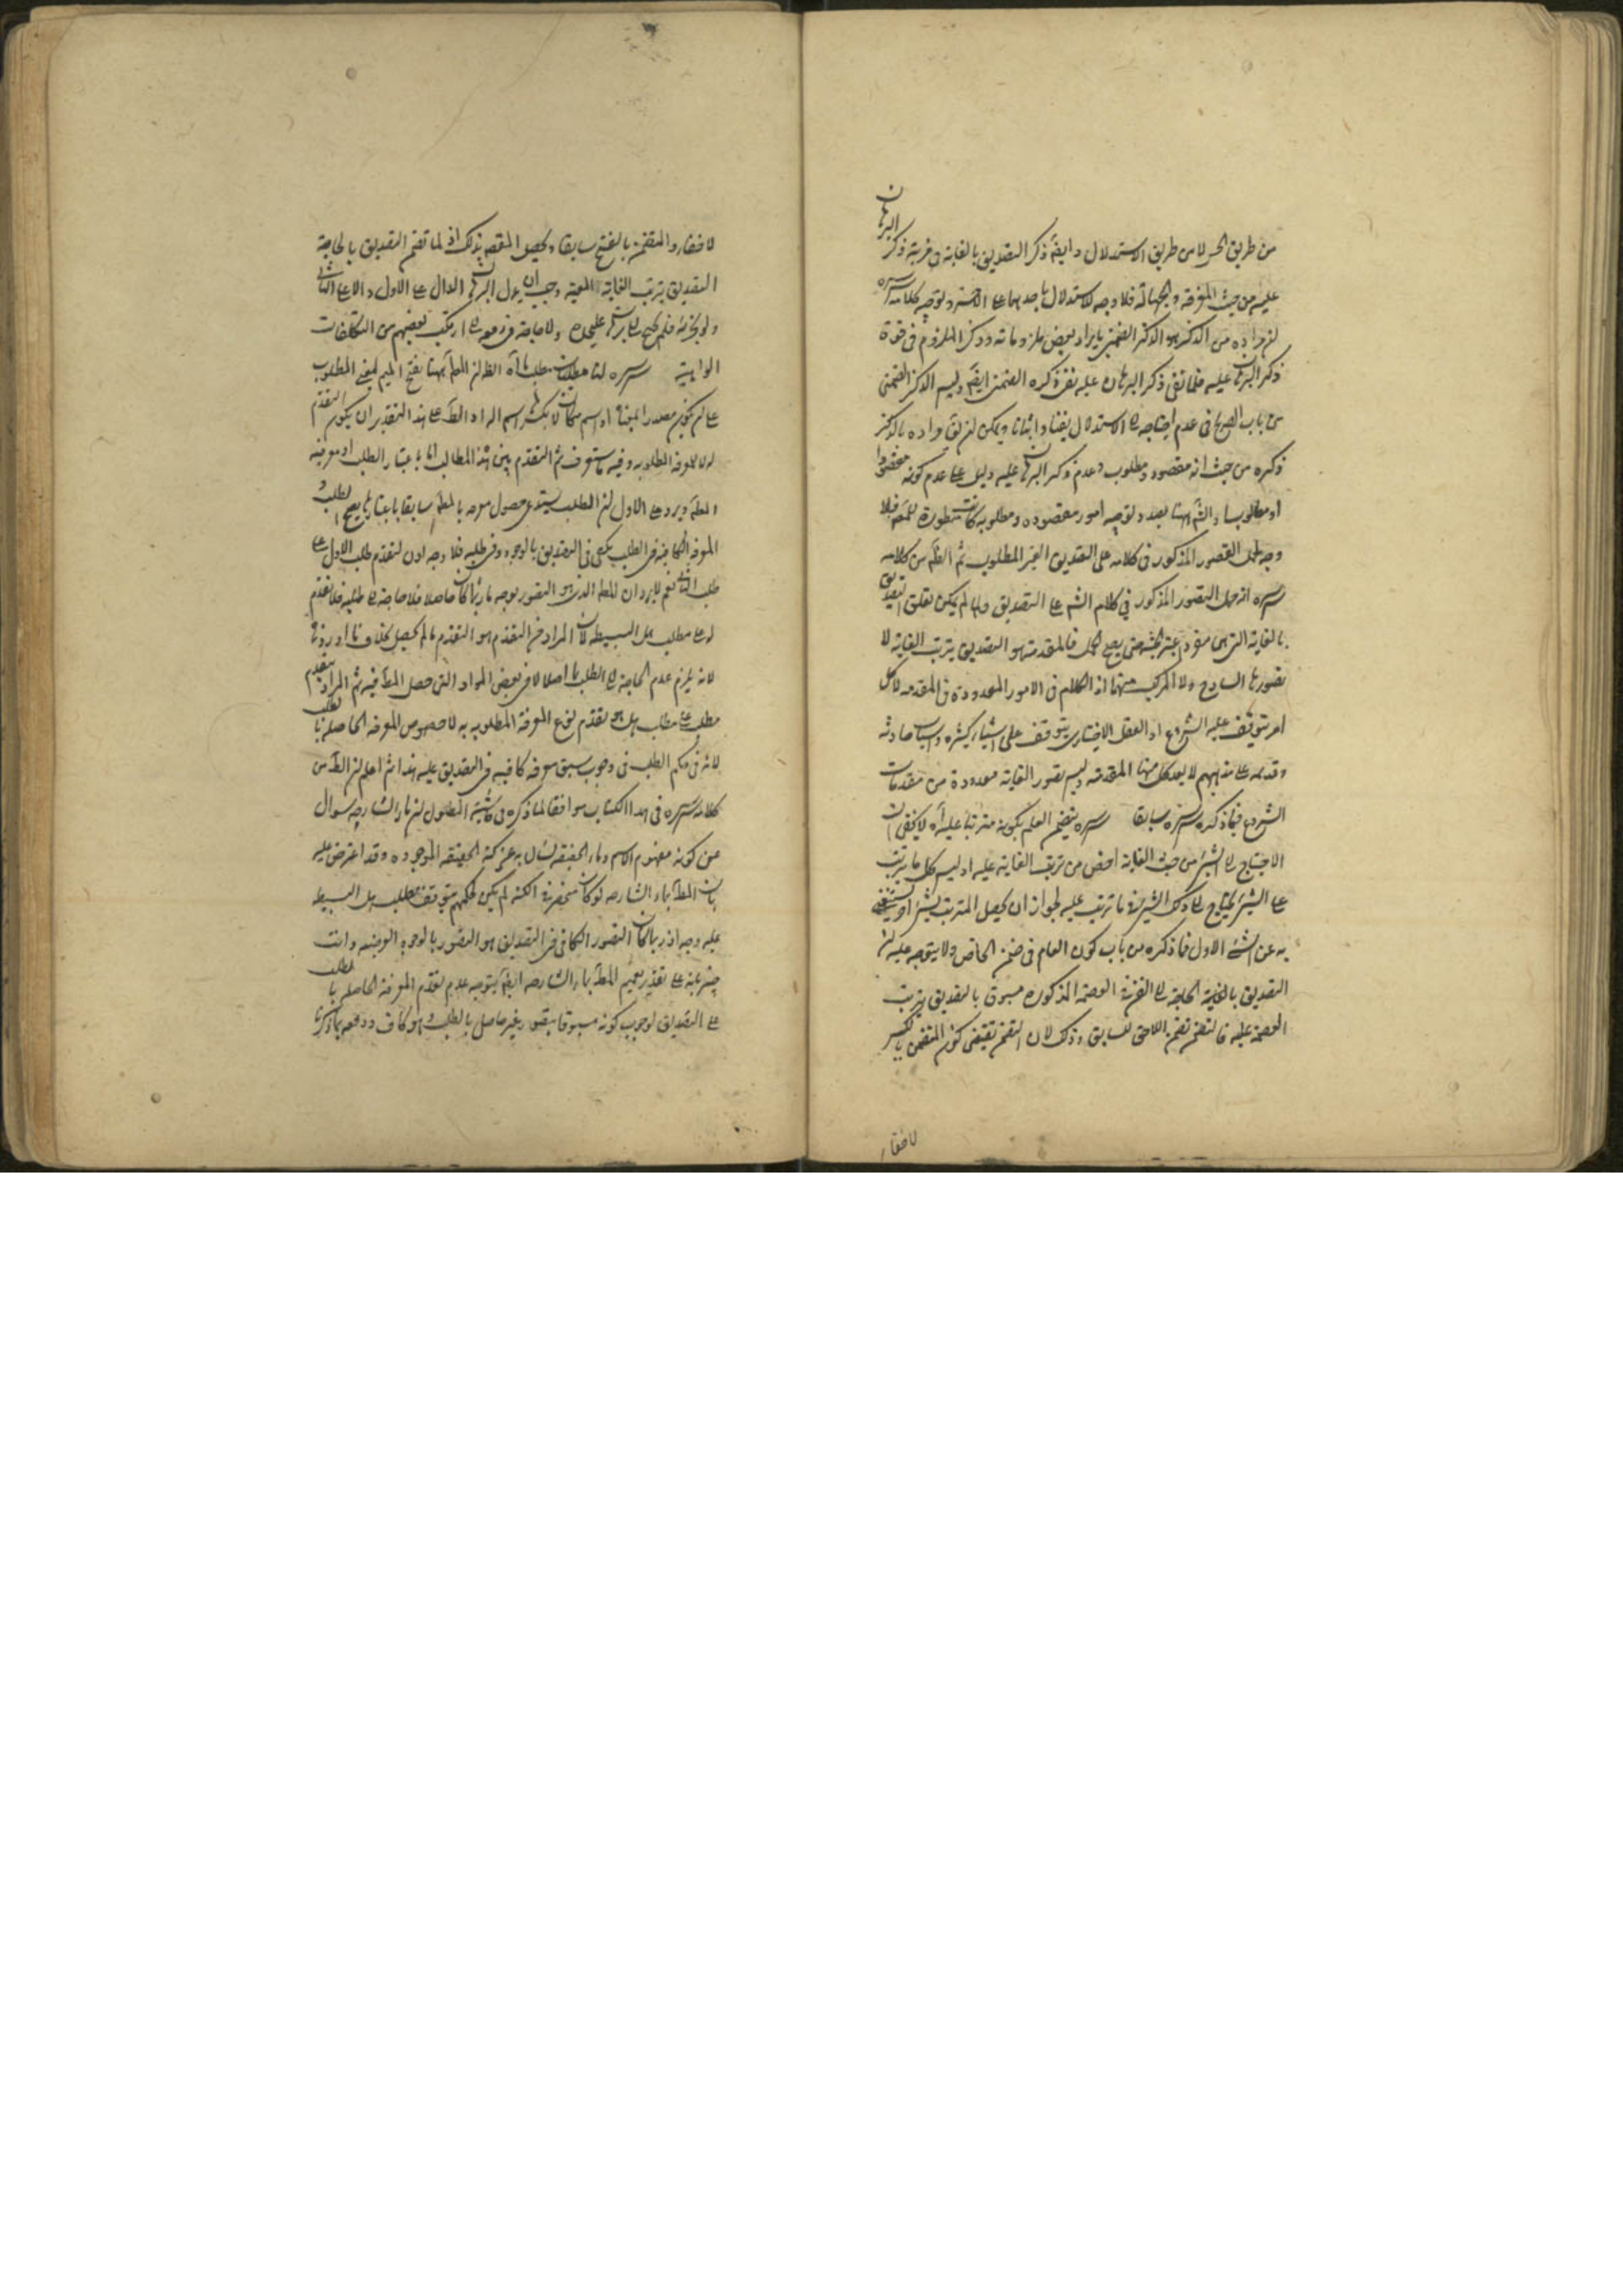 من طريق الحس لا من طريق الاستدلال وايضا ذكر التصديق بالغاية في قرينة ذكر البرهان
عليه من حيث المعرفة والجهالة فلا وجه للاستدلال باحدهما على الآخر وتوجيه كلامه سره
مراده من الذكر هو الذكر الضمني بايراد بعض ملزوماته وذكر الملزوم في قوة
ذكر البرهان عليه فلما نفى ذكر البرهان عليه نفى ذكره الضمني ايضا وليس الذكر الضمني
من باب الصريح في عدم احتياجه الى الاستدلال نفيا واثباتا ويمكن ان يقال مراده بالذكر
ذكره من حيث انه مقصود ومطلوب وعدم ذكر البرهان عليه دليل على عدم كونه مقصودا
او مطلوبا والش ههنا بصدد توجيه امور مقصوده ومطلوبه كانت منظورة للمص فلا
وجه لحمل التصور المذكور في كلامه على التصديق الغير المطلوب ثم الظ من كلامه
سره انه حمل التصور المذكور في كلام الش على التصديق ولما لم يكن تعلق التصديق
بالغاية التي هي مفرد حتى يصح الحمل فالمقدمة هو التصديق بترتب الغاية لا
تصورها الساذج ولا المركب منهما اذ الكلام في الامور المعدودة في المقدمه لا كل
امر يتوقف عليه الشروع اذ الفعل الاختياري يتوقف على اشياء كثيره واسباب حادثه
وقديمه على مذهبهم لا يعد كل منها المقدمه وليس تصور الغاية معدودة من مقدمات
الشروع فيما ذكره سره سابقا سره يتضمن العلم بكونه مترتبا عليه اه لا يخفى ان
الاحتياج الى الشيء من حيث الغاية اخص من ترتب الغاية عليه اذ ليس كل ما يترتب
على الشيء يحتاج الى ذلك الشيء في ترتبه عليه لجواز ان يحصل المترتب بشيء آخر ويستغنى
به عن الشيء الاول فما ذكره من باب كون العام في ضمن الخاص ولا يتوجه عليه ان
التصديق بالحاجة الى الفن في العصمة المذكورة مسبوق بالتصديق بترتب
العصمة عليه فالتضمن تضمن اللاحق للسابق وذلك لان التضمن يقتضي كون المتضمن بالكسر
لاحقا
لاحقا والمتضمن بالفتح سابقا ويحصل المقصد بذلك اذ لما تضمن التصديق بالحاجة
التصديق بترتب الغاية المعينة وجب ان يدل البرهان الدال على الاول والا على الثاني
ولو بجزئه فلم يحتج الى برهان عليحده ولا حاجة في دفعه الى ارتكاب بعضهم من التكلفات
الواهية سره لنا مطلبان مطلب ما اه الظ ان المطلب ههنا بفتح الميم بمعنى المطلوب
على ان يكون مصدرا ميميا او اسم مكان لا بكسر اسم اله اذ الظ على هذا التقدير ان يكون التقدم
له لا للمعرفة المطلوبه وفيه ما ستعرف ثم التقدم بين هذه المطالب اما باعتبار الطلب او معرفة
المطلب ويرد على الاول ان الطلب يستدعي حصول معرفه بالمطلب سابقا باعتبارها يصح الطلب و
المعرفة الكافية في الطلب يكفي في التصديق بالوجود وفي طلبه فلا وجه اذن لتقدم طلب الاول على
طلب الثاني نعم لا يرد ان المطلب الذي هو التصور بوجه ما ربما كان حاصلا فلا حاجة الى طلبه فلا تقدم
له على مطلب هل البسيطه لان المراد من التقدم هو التقدم ما لم يحصل
لانه يلزم عدم الحاجة الى الطلب اصلا لا في بعض المواد التي حصل المطلب فيه ثم المراد بتقدم
مطلب على مطلب هل هو تقدم نوع المعرفة المطلوبه به لا خصوص المعرفه الحاصله بالطلب
لانه في حكم الطلب في وجوب سبق معرفه كافيه في التصديق عليه هذا ثم اعلم ان الظ من
كلامه سره في هذا الكتاب موافقا لما ذكره في حاشية المطول ان ما الشارحه سوال
عن كونه مفهوم الاسم وما الحقيقه سوال به عن كنه الحقيقه الموجوده وقد اعترض عليه
بان المطلب بما الشارحه لو كان منحصرا في الكنه لم يكن حكمهم بتوقف مطلب هل البسيطه
عليه وجه اذ ربما كان التصور الكافي في التصديق هو التصور بالوجوه العرضيه وانت
خبير بانه على تقدير تعميم المطلب بما الشارحه ايضا يتوجه عدم تقدم المعرفة الحاصله بالطلب
على التصديق لوجوب كونه مسبوقا بتصور غير حاصل بالطلب وهو كاف ودفعه بما ذكرنا